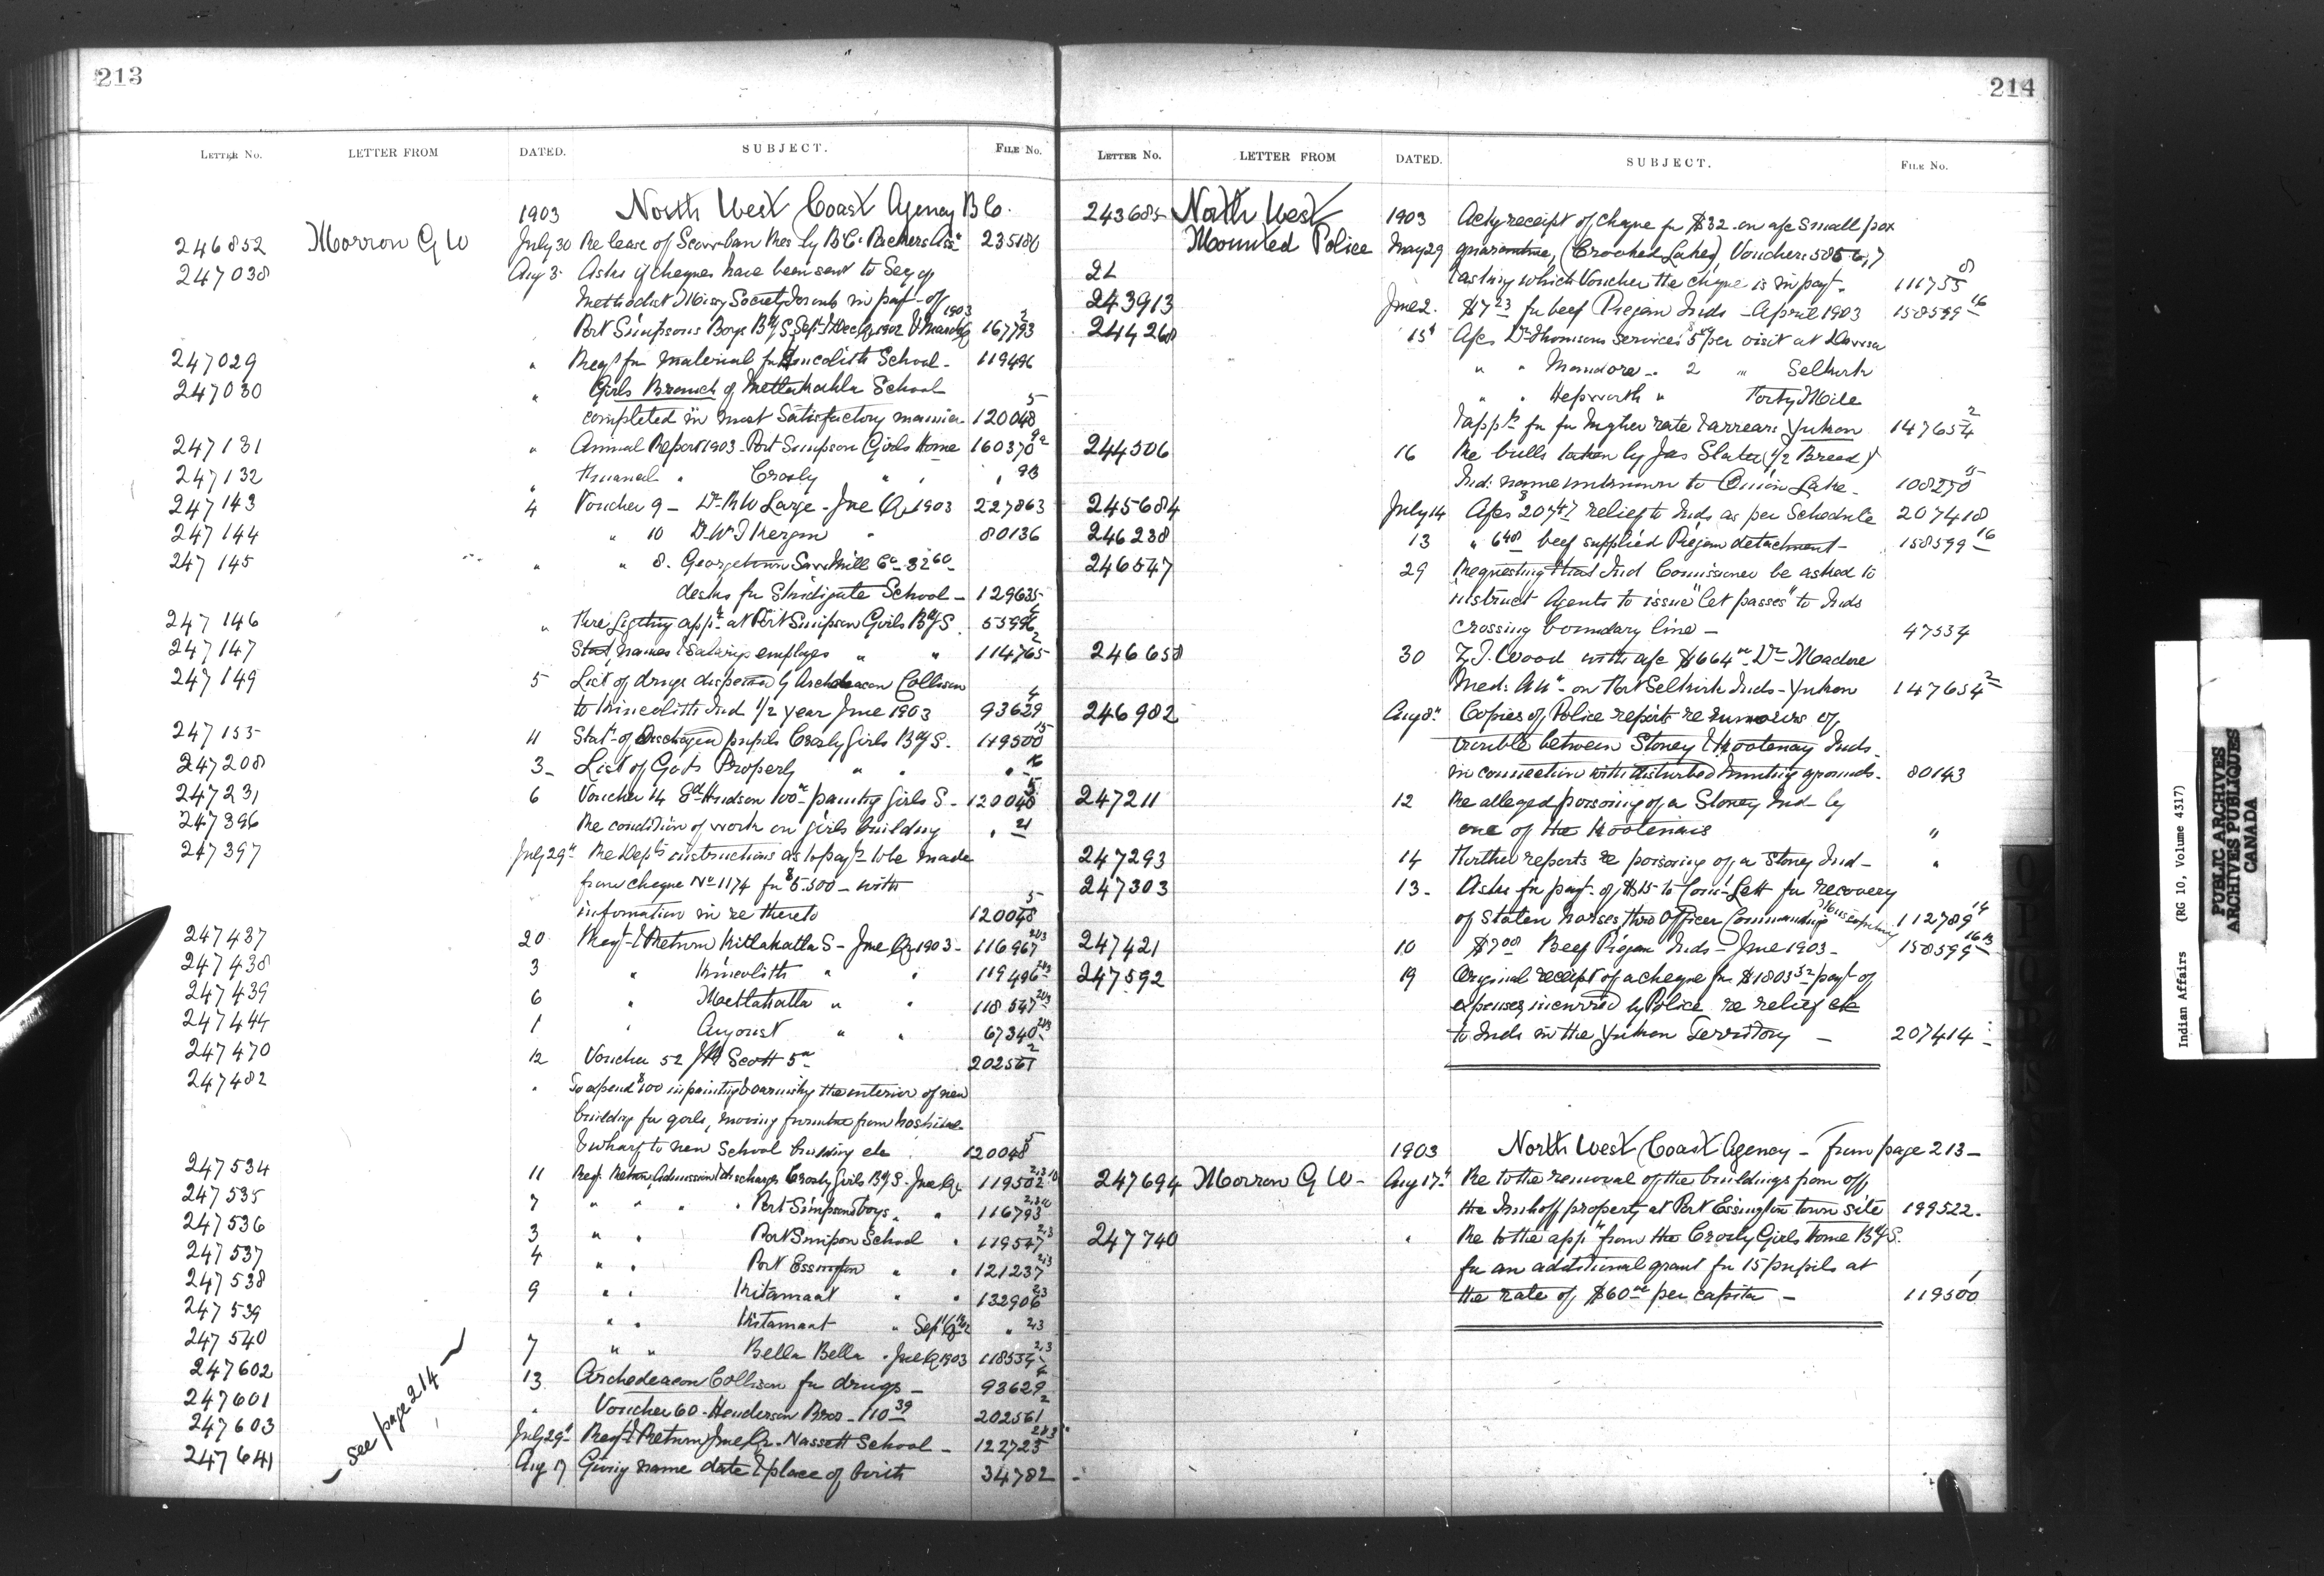 213
LETTER No. LETTER FROM DATED. SUBJECT. FILE No.
1903 North West Coast Agency B.C.
246852 Morrow G W July 30 Re lease of Res by B.C. Packers Assn 235180
247038 Aug 3 Asks if cheques have been sent to Secy of
Methodist Missy Society in payt of
Port Simpsons Boys Bdg S. Sept & Dec Qr 1902 & March 1903 16793 2
247029 " Reqt for material for Kincolith School - 119496
247030 " Girls Branch of Metlakahtla School
completed in most satisfactory manner 120048 5
247131 " Annual Report 1903 - Port Simpson Girls Home 160370
247132 " Crosby " "
247143 4 Voucher 9 - Dr R W Large - Jne Qr 1903 227863
247144 " 10 Dr W J " 80136
247145 " " 8. Georgetown Saw Mill Co 32 60
desks for Skidigate School - 129635
247146 " Fire Lighting app. at Port Simpson Girls Bdg S. 55996
247147 Stat names & salaries employes " " 114765 2
247149 5 List of drugs dispensed by Archdeacon Collison
to Kincolith Ind 1/2 year June 1903 93629 4
247155 4 Stat of Discharged pupils Crosby Girls Bdg S. 119500 15
247208 3 List of Govts Property " " " 16
247231 6 Voucher 14 Ed Hudson 100 painting Girls S - 120048 5
247396 Re condition of work on girls building " 21
247397 July 29" Re Depts instructions as to payts to be made
from cheque No 1174 for $5.500 - with
information in re thereto 120048 5
247437 20 Reqt & Return Kitlahatla S - Jne Qr 1903 - 116967 2&3
247438 3 " Kincolith " " 119496 2&3
247439 6 " Metlakatla " " 118547 2&3
247444 1 " " " 67340 2&3
247470 12 Voucher 52 Scott 5 202561 2
247482 " To expend $100 in painting & varnishing the interior of new
building for girls, moving furniture from hospital
& wharf to new School building etc 120048 5
247534 11 Reqt Return Admission & discharge Crosby Girls Bdg S. June Qr 119502
247535 7 " " " " Port Simpson Boys " " 116793
247536 3 " " Port Simpson School " 119547 2,3
247537 4 " " Port Essington " " 121237 2,3
247538 9 " " Kitamaat " " 132906 2,3
247539 " " Kitamaat " Sept Qr " 2,3
247540 7 " " Bella Bella " June Qr 1903 118554 2,3
247602 13 Archdeacon Collison for drugs - 93629 4
247601 " Voucher 60 - Henderson Bros - 110 39 202561 2
247603 July 29" Reqt & Return Jne Qr - Massett School - 122725 2&3
247641 Aug 17 Giving name date & place of birth 34782
see page 214
214
LETTER No. LETTER FROM DATED. SUBJECT. FILE No.
243685 North West 1903 Ackg receipt of cheque for $32 on a/c Small pox
Mounted Police May 29 quarantine, (Crooked Lakes), Vouchers 585 6, 7
asking which Voucher the cheque is in payt. 111755 8
243913 June 2. $7 23 for beef Piegan Inds - April 1903 158599 16
244268 15" A/cs Dr Thomsons services $5 per visit at Dawson
" " Mandore - 2 " Selkirk
" " Hepworth " Forty Mile
& appn for higher rate & arrears Yukon 147654 2
244506 16 Re bulls taken by Jas Slater (1/2 Breed) &
Ind: name unknown to Onion Lake - 108270
245684 July 14 A/cs 207 47 relief to Inds as per Schedule 207418
246238 13 " 6 48 beef supplied Piegan detachment - 158599 16
246547 29 Requesting that Ind Comissioner be asked to
instruct Agents to issue "let passes" to Inds
crossing boundary line - 47534
246658 30 Z.T. Wood with a/c $664 Dr Madore
Med: Att - on Fort Selkirk Inds - Yukon 147654 2
246982 Aug 8" Copies of Police reports re rumours of
trouble between Stoney & Kootenay Inds -
in connection with disturbed hunting grounds. 80143
247211 12 Re alleged poisoning of a Stoney Ind - by
one of the Kootenais "
247293 14 Further reports re poisoning of a Stoney Ind - "
247303 13 - Asks for payt of $15 to Lett for recovery
of Stolen horses, thro Officer Commanding 112789 14
247421 10 $7 08 Beef Piegan Inds - June 1903 - 158599 16
247592 19 Original receipt of a cheque for $1803 32 payt of
expenses, incurred by Police re relief etc
to Inds in the Yukon Territory - 207414
1903 North West Coast Agency - from page 213 -
247694 Morrow G W - Aug 17" Re to the removal of the buildings from off
the Imhoff property at Port Essington town site 199522.
247740 " Re to the app" from the Crosby Girls Home Bdg S.
for an additional grant for 15 pupils at
the rate of $60 per capita - 119500 1
Indian Affairs (RG 10, Volume 4317)
PUBLIC ARCHIVES
ARCHIVES PUBLIQUES
CANADA